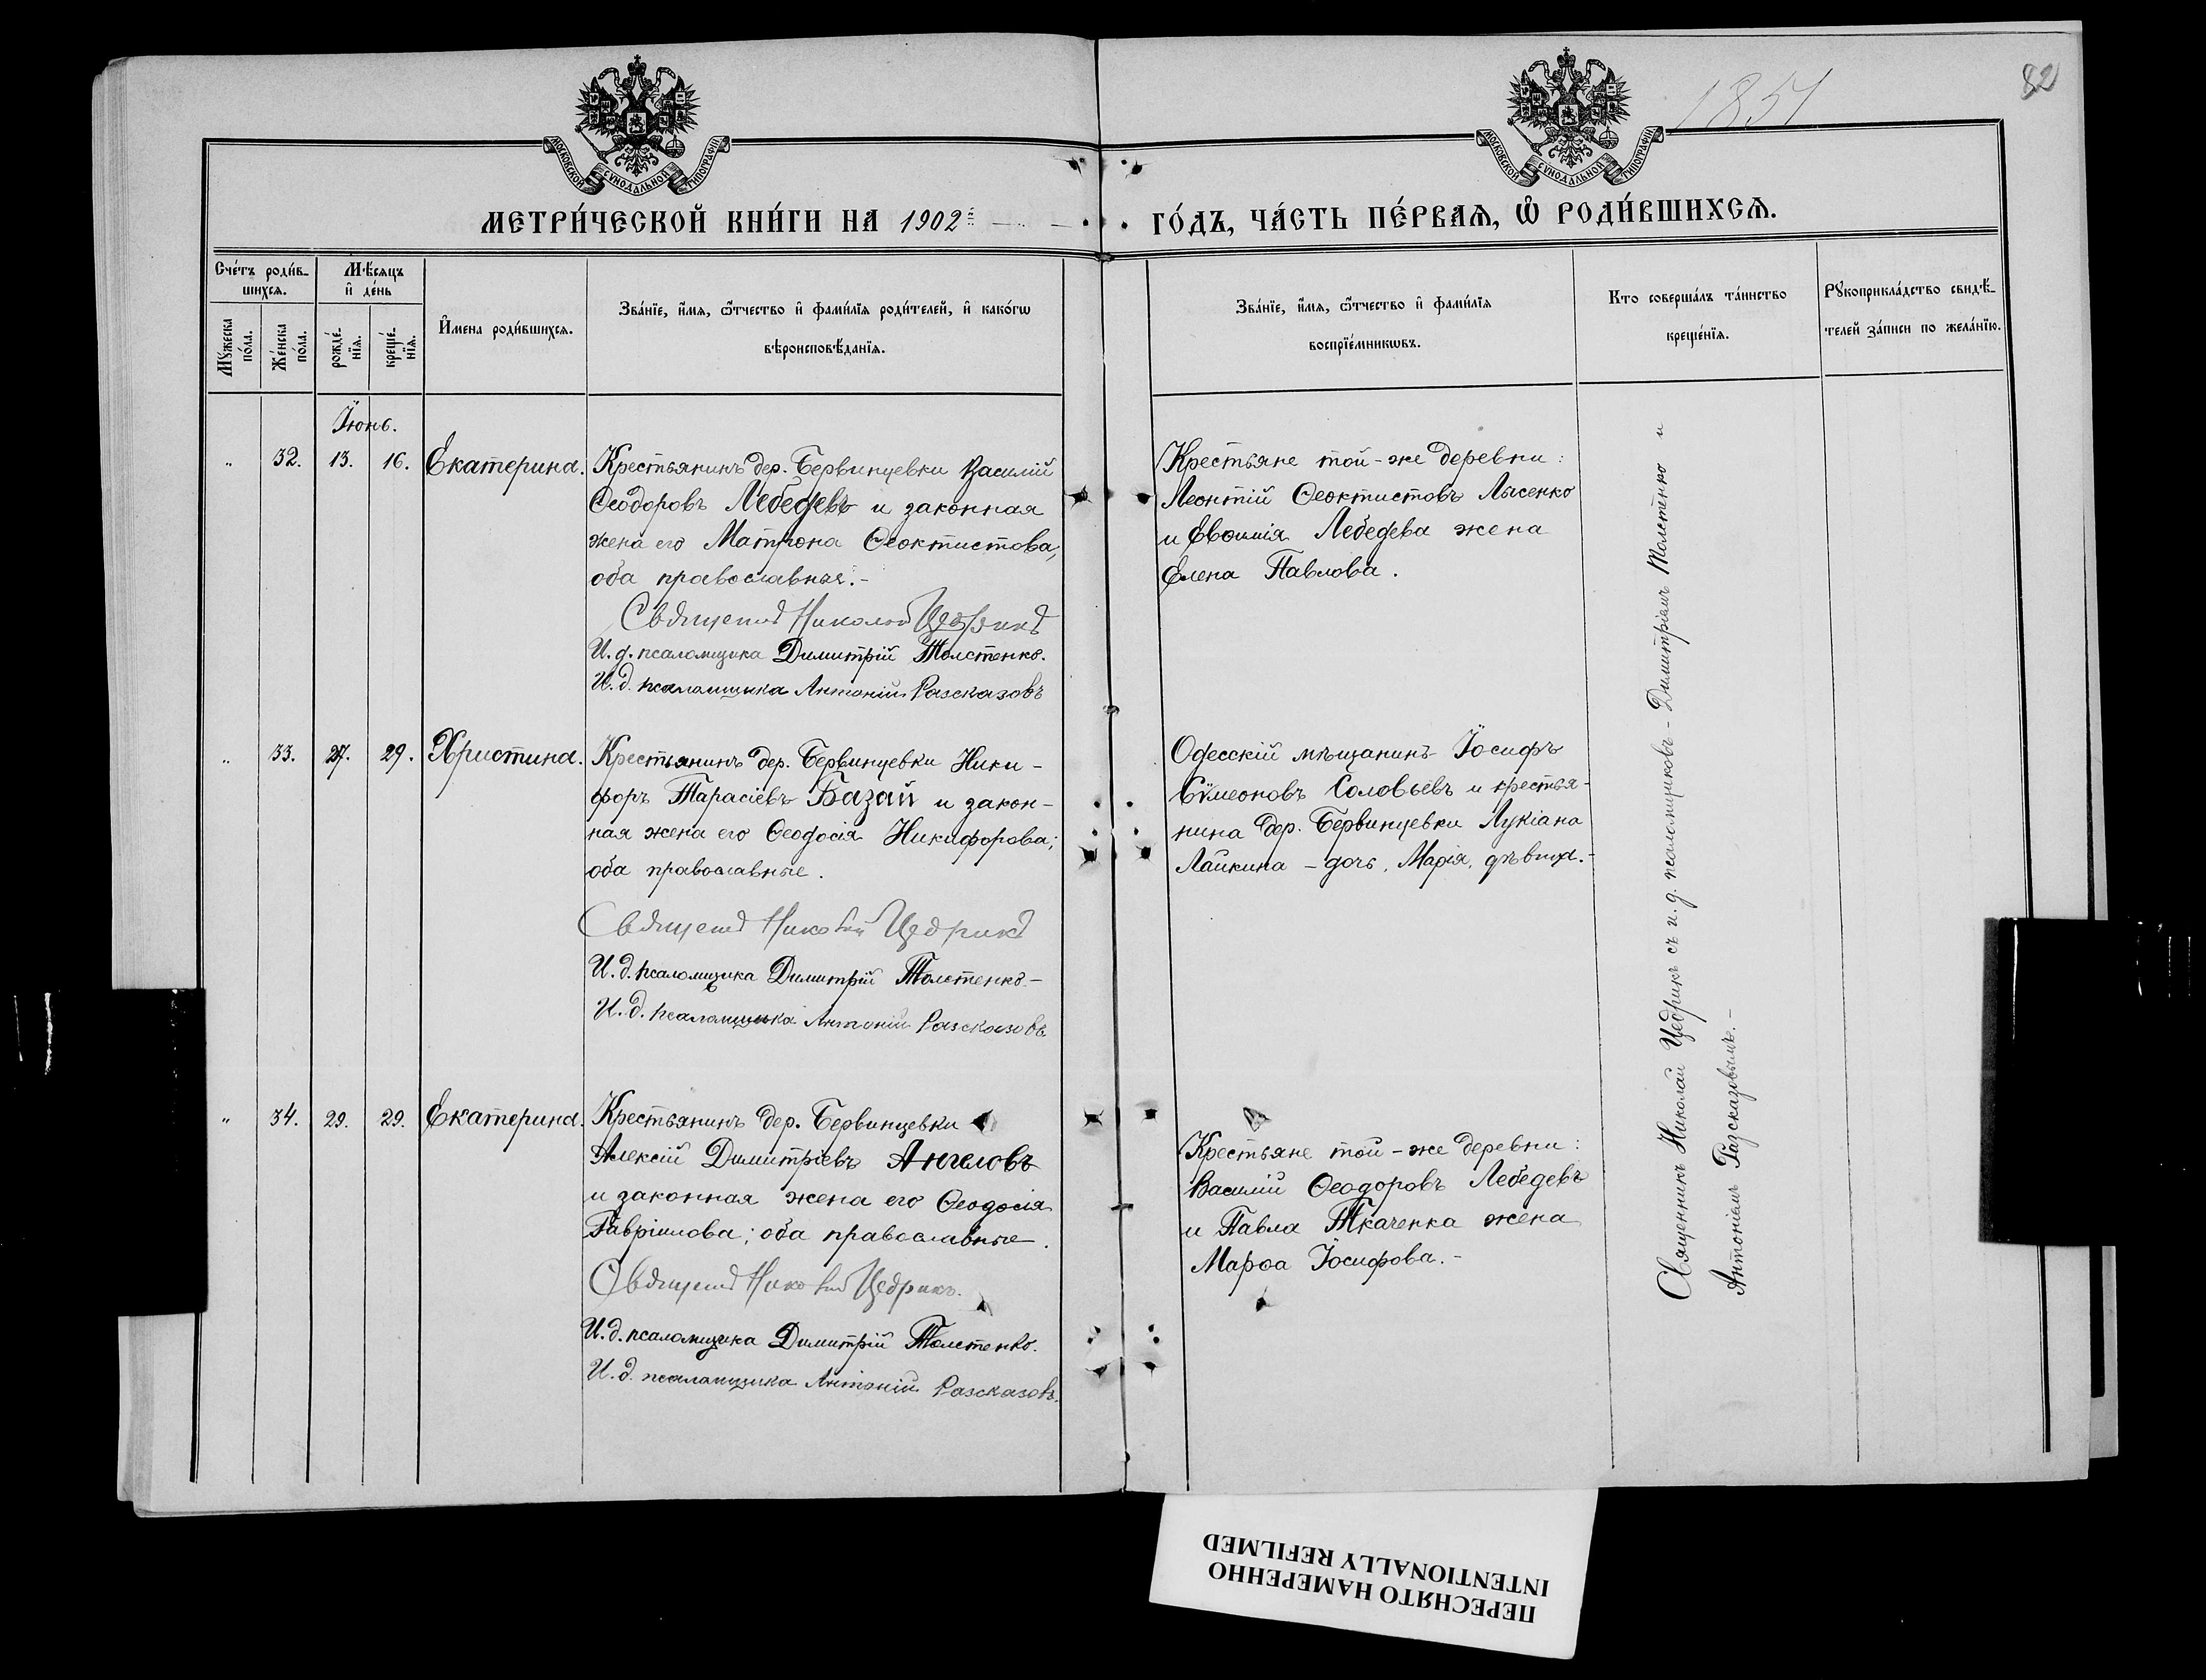 1851
82
МОСКОВСКОЙ СѴНОДАЛЬНОЙ ТИПОГРАФІИ
МОСКОВСКОЙ СѴНОДАЛЬНОЙ ТИПОГРАФІИ
МЕТРИ́ЧЕСКОЙ КНИ́ГИ НА 1902й ГО́ДЪ, ЧА́СТЬ ПЕ́РВАЯ, Ѡ РОДИ́ВШИХСЯ.
Сче́тъ роди́в-
шихся.
Мѣ́сяцъ
и де́нь
Му́жеска
по́ла.
Же́нска
по́ла.
рожде́-
нїя.
креще́-
нїя.
И́мена роди́вшихся.
Зва́нїе, и́мя, ѻ́тчество и фами́лїя роди́телей, и како́гѡ
вѣроисповѣ́данїя.
Зва́нїе, и́мя, ѻ́тчество и фами́лїя
воспрїе́мникѡвъ.
Кто соверша́лъ та́инство
креще́нїя.
Рꙋкоприкла́дство свидѣ́-
телей за́писи по жела́нїю.
Іюнь.
" 32. 13. 16. Екатерина.
Крестьянинъ дер. Бервинцевки Василій
Ѳеодоровъ Лебедевъ и законная
жена его Матрона Ѳеоктистова,
оба православные.-
Священ Николай Цедрикъ
И. д. псаломщика Димитрій Толстенко.
И. д. псаломщика Антоній Разсказовъ
Крестьяне той-же деревни:
Леонтій Ѳеоктистовъ Лысенко
и Евѳимія Лебедева жена
Елена Павлова.
" 33. 27. 29. Христина.
Крестьянинъ дер. Бервинцевки Ники-
форъ Тарасіевъ Базай и закон-
ная жена его Ѳеодосія Никифорова;
оба православные.
Священ Николай Цедрикъ
И. д. псаломщика Димитрій Толстенко-
И. д. псаломщика Антоній Разсказовъ
Одесскій мѣщанинъ Іосифъ
Сѵмеоновъ Соловьевъ и крестья-
нина дер. Бервинцевки Лукіана
Лайкина - дочь, Марія, дѣвица.-
" 34. 29. 29. Екатерина.
Крестьянинъ дер. Бервинцевки
Алексій Димитріевъ Ангеловъ
и законная жена его Ѳеодосія
Гавріилова; оба православные.
Священ Николай Цедрикъ.
И. д. псаломщика Димитрій Толстенко.
И. д. псаломщика Антоній Разсказовъ.
Крестьяне той-же деревни:
Василій Ѳеодоровъ Лебедевъ
и Павла Ткаченка жена
Марѳа Іосифова.-
Священникъ Николай Цедрикъ съ и. д. псаломщиковъ - Димитріемъ Толстенко и
Антоніемъ Разсказовымъ.-
ПЕРЕСНЯТО НАМЕРЕННО
INTENTIONALLY REFILMED